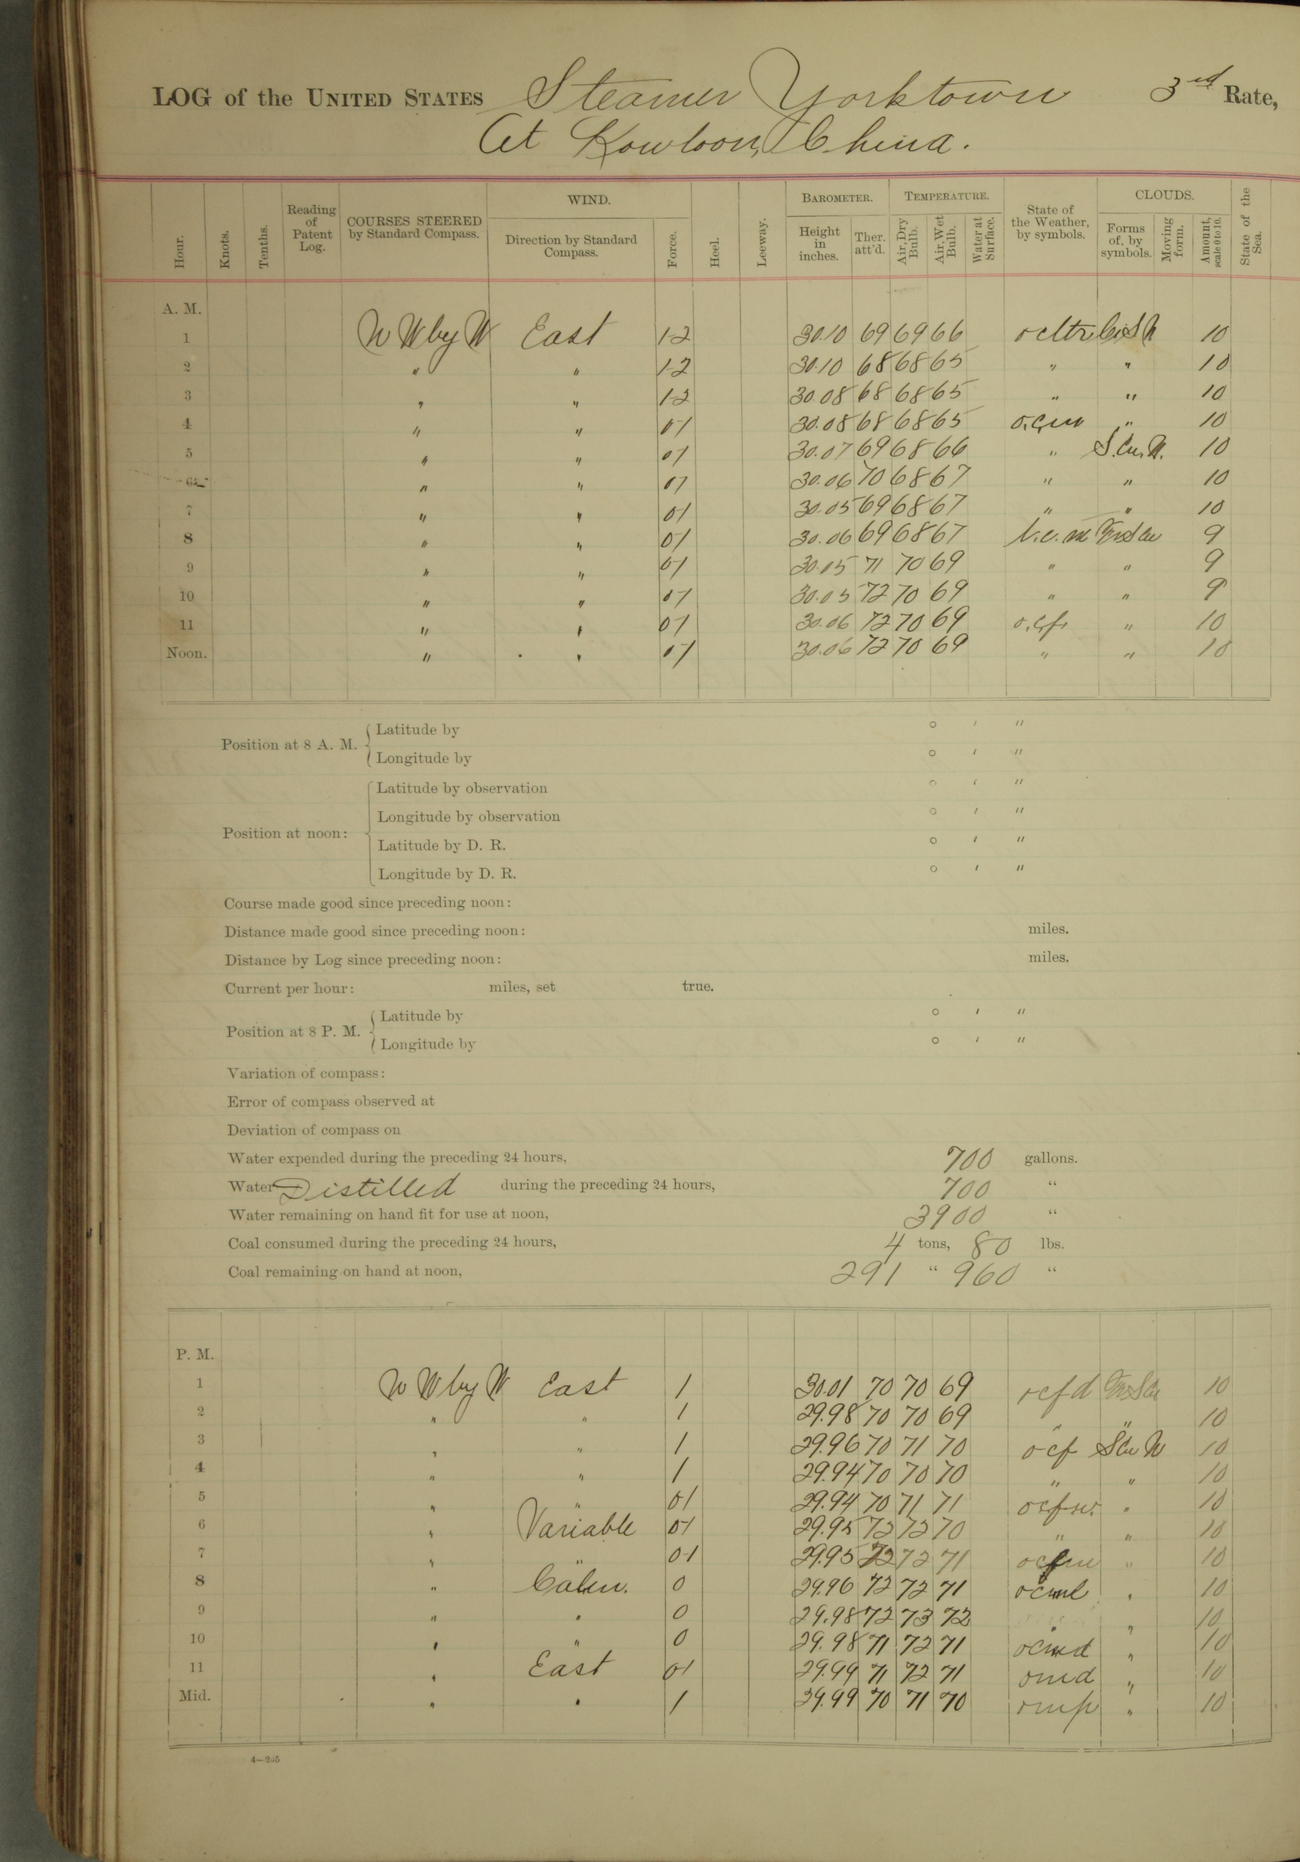 LOG of the UNITED STATES Steamer Yorktown 3rd Rate,
At Kowloon, China.
Hour. Knots. Tenths. Reading of Patent Log. COURSES STEERED by Standard Compass. WIND. Direction by Standard Compass. Force. Heel. Leeway. BAROMETER. Height in inches. Ther. att'd. TEMPERATURE. Air, Dry Bulb. Air, Wet Bulb. Water at Surface. State of the Weather, by symbols. CLOUDS. Forms of, by symbols. Moving form. Amount, scale 0 to 10. State of the Sea.
A. M.
1 N W by W East 1-2 30.10 69 69 66 10
2 " " 1-2 30.10 68 68 65 " " 10
3 " " 1-2 30.08 68 68 65 " " 10
4 " " 01 30.08 68 68 65 o.c.m " 10
5 " " 01 30.07 69 68 66 " S.Cu.N. 10
6 " " 01 30.06 70 68 67 " " 10
7 " " 01 30.05 69 68 67 " " 10
8 " " 01 30.06 69 68 67 b.c.m 9
9 " " 01 30.05 71 70 69 " " 9
10 " " 01 30.05 72 70 69 " " 9
11 " " 01 30.06 72 70 69 o.c.f. " 10
Noon. " " 01 30.06 72 70 69 " " 10
Position at 8 A. M. Latitude by ° ' "
Longitude by ° ' "
Latitude by observation ° ' "
Longitude by observation ° ' "
Position at noon:
Latitude by D. R. ° ' "
Longitude by D. R. ° ' "
Course made good since preceding noon:
Distance made good since preceding noon: miles.
Distance by Log since preceding noon: miles.
Current per hour: miles, set true.
Position at 8 P. M. Latitude by ° ' "
Longitude by ° ' "
Variation of compass:
Error of compass observed at
Deviation of compass on
Water expended during the preceding 24 hours, 700 gallons.
Water Distilled during the preceding 24 hours, 700 "
Water remaining on hand fit for use at noon, 3900 "
Coal consumed during the preceding 24 hours, 4 tons, 80 lbs.
Coal remaining on hand at noon, 291 " 960 "
P. M.
1 N W by W East 1 30.01 70 70 69 ocfd 10
2 " " 1 29.98 70 70 69 " " 10
3 " " 1 29.96 70 71 70 ocf SCu N 10
4 " " 1 29.94 70 70 70 " " 10
5 " " 01 29.94 70 71 71 " 10
6 " Variable 01 29.95 72 72 70 " " 10
7 " " 01 29.95 72 72 71 " 10
8 " Calm. 0 29.96 72 72 71 ocml " 10
9 " " 0 29.98 72 73 72 " " 10
10 " " 0 29.98 71 72 71 ocmd " 10
11 " East 01 29.99 71 72 71 omd " 10
Mid. " " 1 29.99 70 71 70 omp " 10
4—205